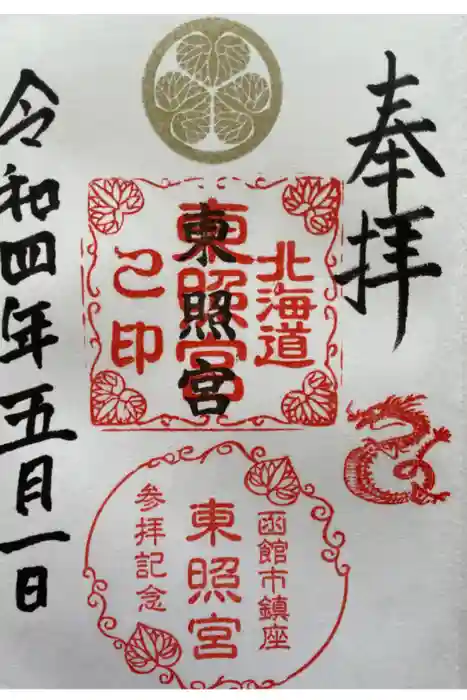 奉拝
北海道
東照宮
東照宮
之印
函館市鎮座
東照宮
参拝記念
令和四年五月一日